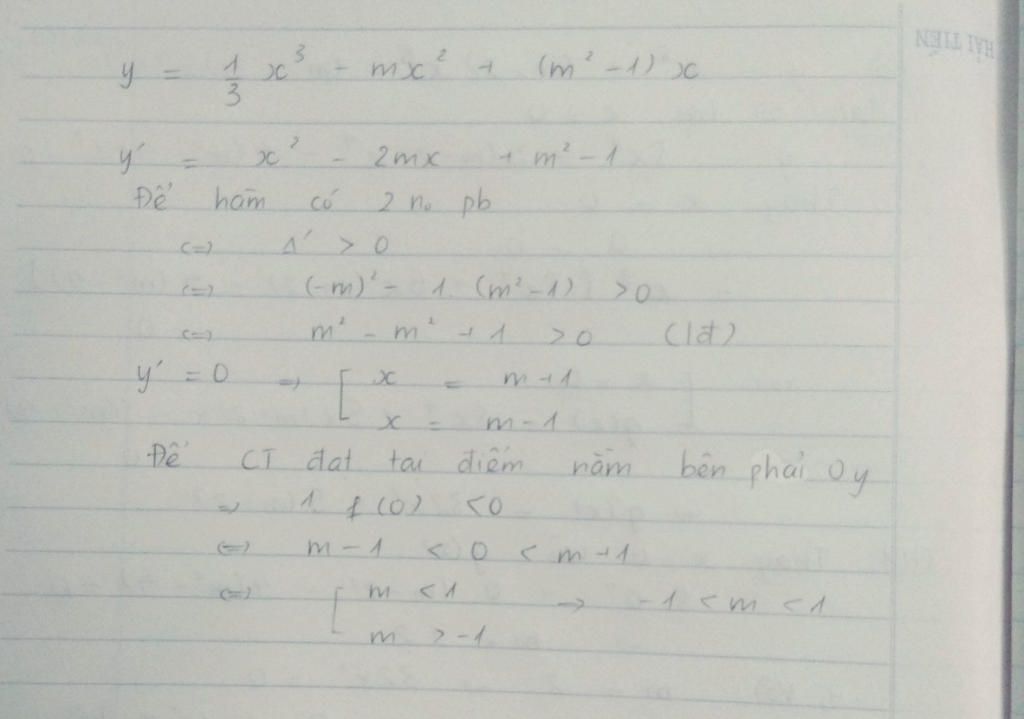 HẢI TIẾN
y = 1/3 x³ - mx² + (m² - 1) x
y' = x² - 2mx + m² - 1
Để hàm có 2 n₀ pb
<=> Δ' > 0
<=> (-m)² - 1. (m² - 1) > 0
<=> m² - m² + 1 > 0 (lđ)
y' = 0 => [ x = m + 1
x = m - 1
Để CT đạt tại điểm nằm bên phải Oy
=> 1. f(0) < 0
<=> m - 1 < 0 < m + 1
<=> [ m < 1 -> -1 < m < 1
m > -1